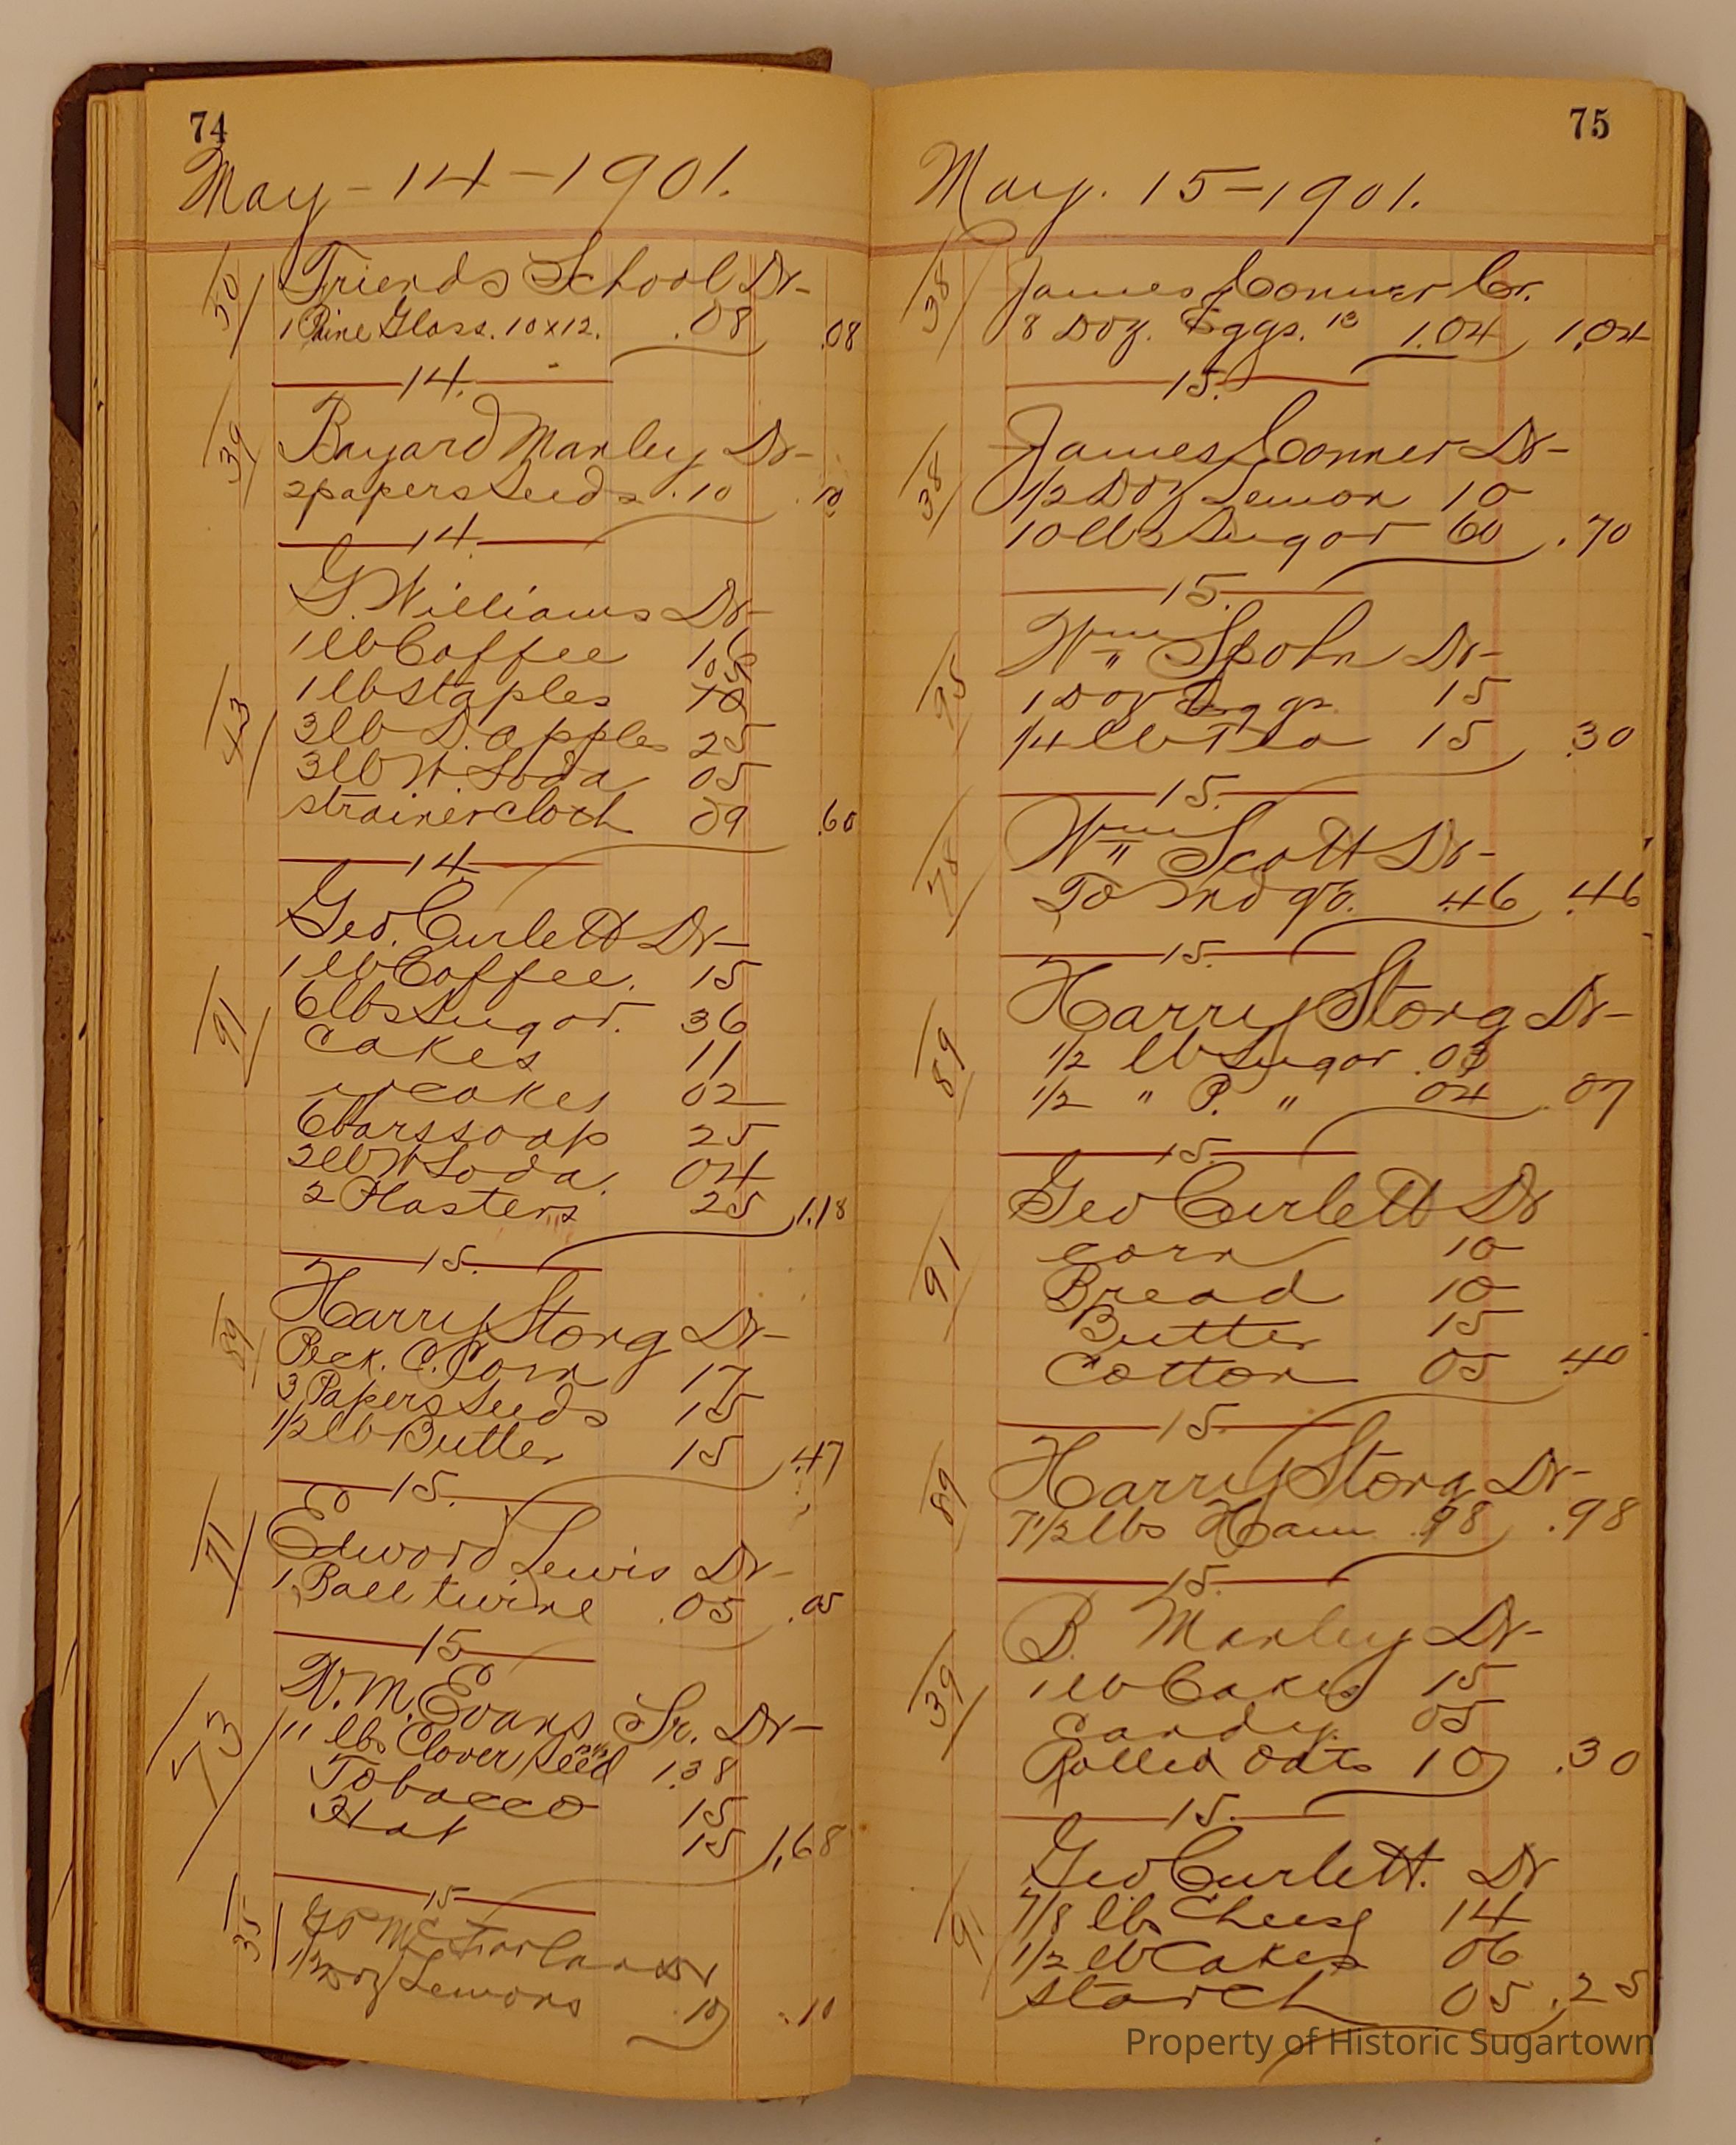 74
May - 14 - 1901.
50
Friends School Dr
1 Pine Glass. 10x12. .08 .08
14.
39
Bayard Manley Dr
2 papers Seeds .10 .10
14.
G. Williams Dr
1 lb Coffee
1 lb staples
3 lb D. apples 25
3 lb W. Soda 05
strainer cloth 09 .60
14.
Geo. Curlett Dr
1 lb Coffee. 15
91
6 lbs Sugar. 36
Cakes 11
cakes 02
6 bars soap 25
2 lb W Soda. 04
2 Plasters 25 1.18
15.
89
Harry Storg Dr
Peck. C. Corn 17
3 Papers Seeds 15
1/2 lb Butter 15 .47
15.
71
Edward Lewis Dr
1 Ball twine .05 .05
15
W. M. Evans Sr. Dr
11 lbs Clover Seed 1.38
53
Tobacco 15
Hat 15 1.68
15
35
McFarland Dr
1/2 Doz Lemons .10 .10
75
May. 15-1901.
38
James Conner Cr.
8 Doz. Eggs. 13 1.04 1.04
15.
38
James Conner Dr
1/2 Doz Lemon 10
10 lbs Sugar 60 .70
15.
95
Wm Spohn Dr
1 Doz Eggs 15
1/4 lb Tea 15 .30
15.
78
Wm Scott Dr
To Mdse. .46 .46
15.
89
Harry Storg Dr
1/2 lb Sugar .03
1/2 " P. " 04 07
15.
Geo Curlett Dr
corn 10
91
Bread 10
Butter 15
Cotton 05 .40
15.
89
Harry Storg Dr
7 1/2 lbs Ham .98 .98
15.
B. Manley Dr
39
1 lb Cakes 15
Candy. 05
Rolled Oats 10 .30
15.
Geo Curlett. Dr
91
7/8 lbs Cheese 14
1/2 lb Cakes 06
Starch 05 .25
Property of Historic Sugartown